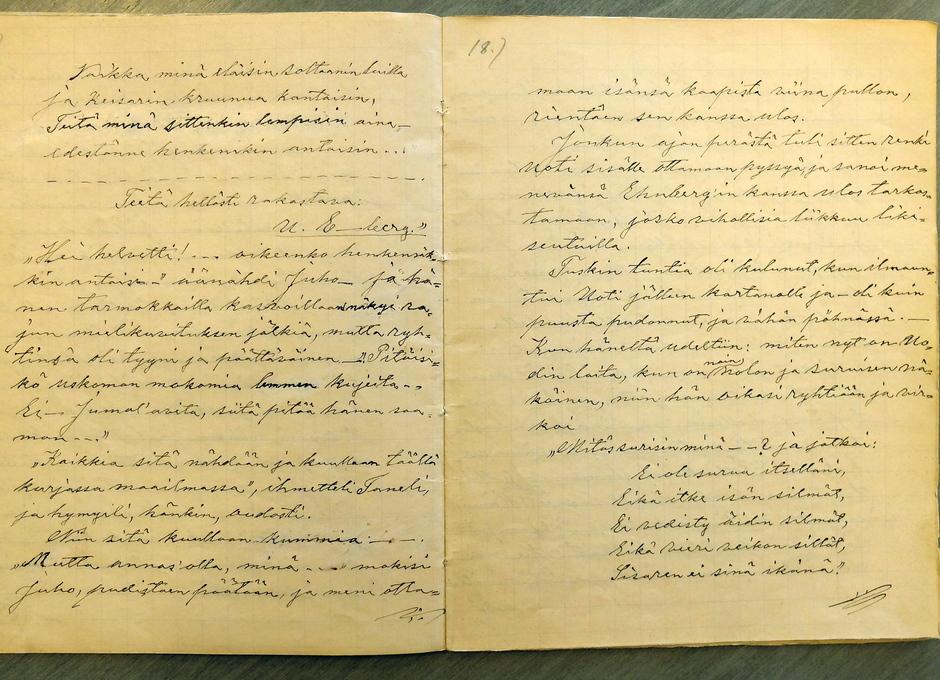 Vaikka minä eläisin solttaanin lailla
ja Keisarin kruunua kantaisin,
Teitä minä sittenkin lempisin aina,—
edestänne henkenikin antaisin...
Teitä hellästi rakastava:
U. E—berg."
"Hei helvetti! --- oikeenko henkensäk=
kin antaisi—" äänähdi Juho— ja hä=
nen tarmokkailla kasvoillaan näkyi ra=
jun mielikuvituksen jälkiä, mutta ryh=
tinsä oli tyyni ja päättäväinen — "Pitäisi=
kö uskoman mokomia lemmen kujeita --
Ei— Jumal'avita, siitä pitää hänen saa=
man ---"
"Kaikkia sitä nähdään ja kuullaan täällä
kurjassa maailmassa", ihmetteli Taneli,
ja hymyili, hänkin, oudosti.
Niin sitä kuullaan kummia — —.
"Mutta annas'olla, minä ---" mokisi
Juho, pudistaen päätään, ja meni otta=
18.)
maan isänsä kaapista viina pullon,
rientäen sen kanssa ulos.
Jonkun ajan perästä tuli sitten renki
Uoti sisälle ottamaan pyssyä, ja sanoi me=
nevänsä Ehnbergin kanssa ulos tarkas=
tamaan, josko vihollisia liikkuu liki=
seutuilla.
Tuskin tuntia oli kulunut, kun ilmaan=
tui Uoti jälleen kartanolle ja — oli kuin
puusta pudonnut, ja vähän pöhnässä. —
Kun häneltä udeltiin: miten nyt on Uo=
din laita, kun on noin nolon ja suruisen nä=
köinen, niin hän oikasi ryhtiään ja vir=
koi
"Mitäs surisin minä — — ? ja jatkoi:
Ei ole surua itselläni,
Eikä itke isän silmät,
Ei vedisty äidin silmät,
Eikä vieri veikon sillät,
Sisaren ei sinä ikänä."